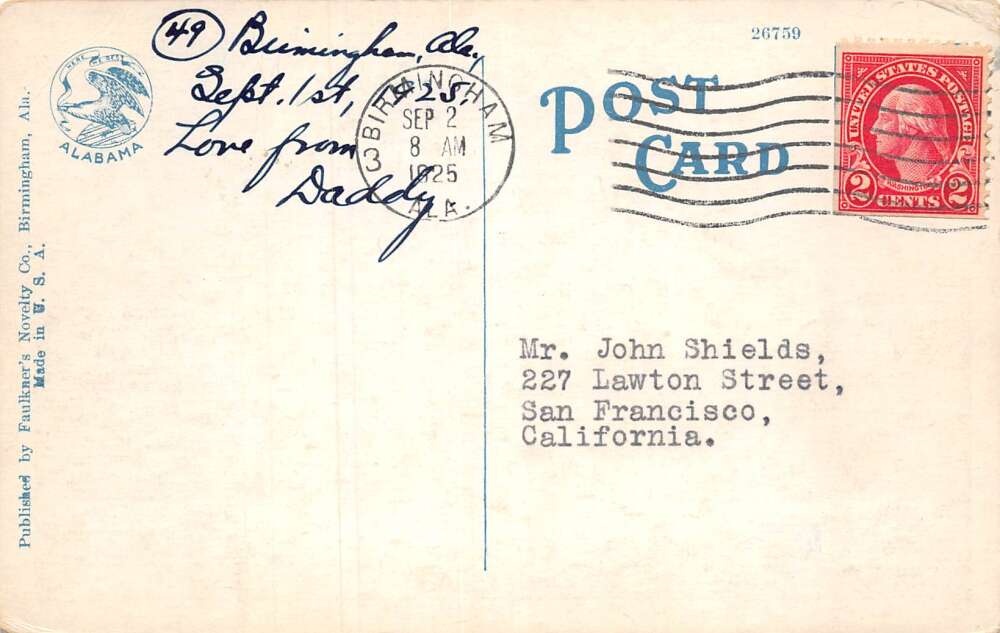 (49) Birmingham, Ala.,
Sept. 1st, 1925.
Love from
Daddy
BIRMINGHAM
SEP 2
8 AM
1925
ALA.
3
26759
POST
CARD
UNITED STATES POSTAGE
WASHINGTON
2 CENTS 2
HERE WE REST
ALABAMA
Published by Faulkner's Novelty Co., Birmingham, Ala.
Made in U. S. A.
Mr. John Shields,
227 Lawton Street,
San Francisco,
California.